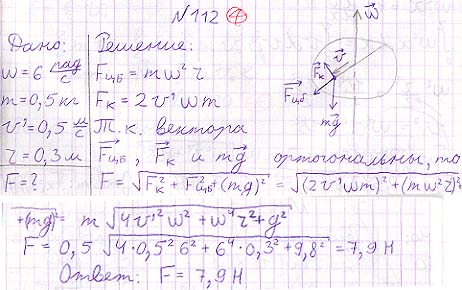 N112 ④
Дано: Решение:
ω = 6 рад/с
m = 0,5 кг
v' = 0,5 м/с
r = 0,3 м
F = ?
Fцб = mω²r
Fк = 2v'ωm
Т.к. вектора
Fцб, Fк и mg ортогональны, то
F = √(Fк² + Fцб² + (mg)²) = √((2v'ωm)² + (mω²r)² +
+(mg)²) = m√(4v'²ω² + ω⁴r² + g²)
F = 0,5 √(4·0,5²6² + 6⁴·0,3² + 9,8²) = 7,9 Н
Ответ: F = 7,9 Н
ω
v
Fк
Fцб
mg